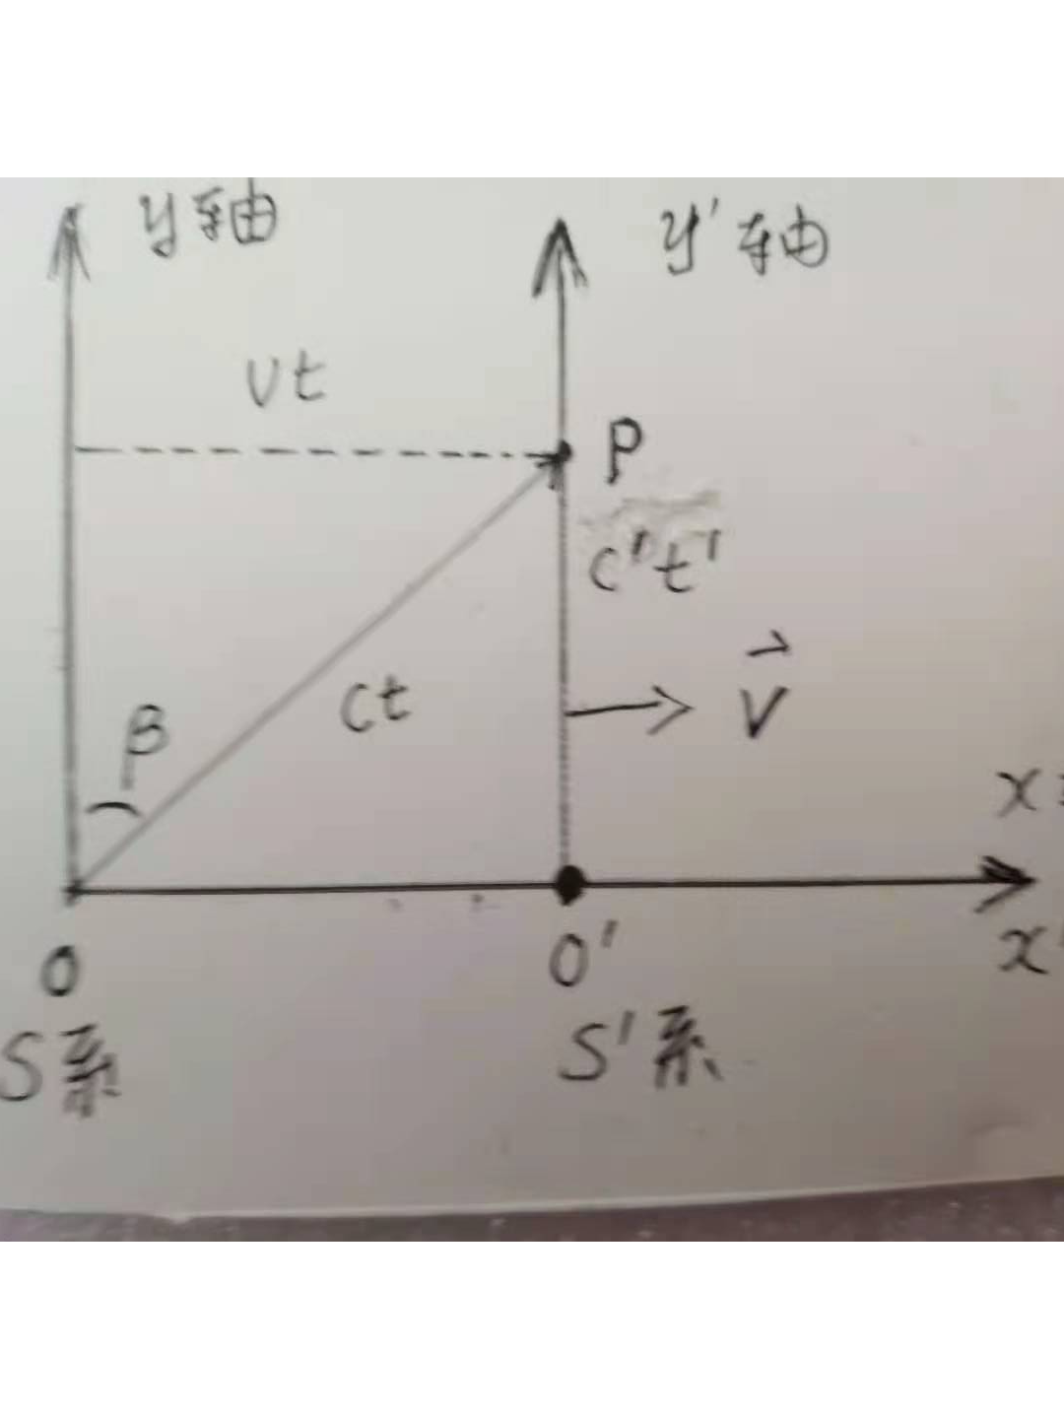 y轴
y'轴
vt
P
c't'
v
ct
β
x
x'
O
O'
S系
S'系